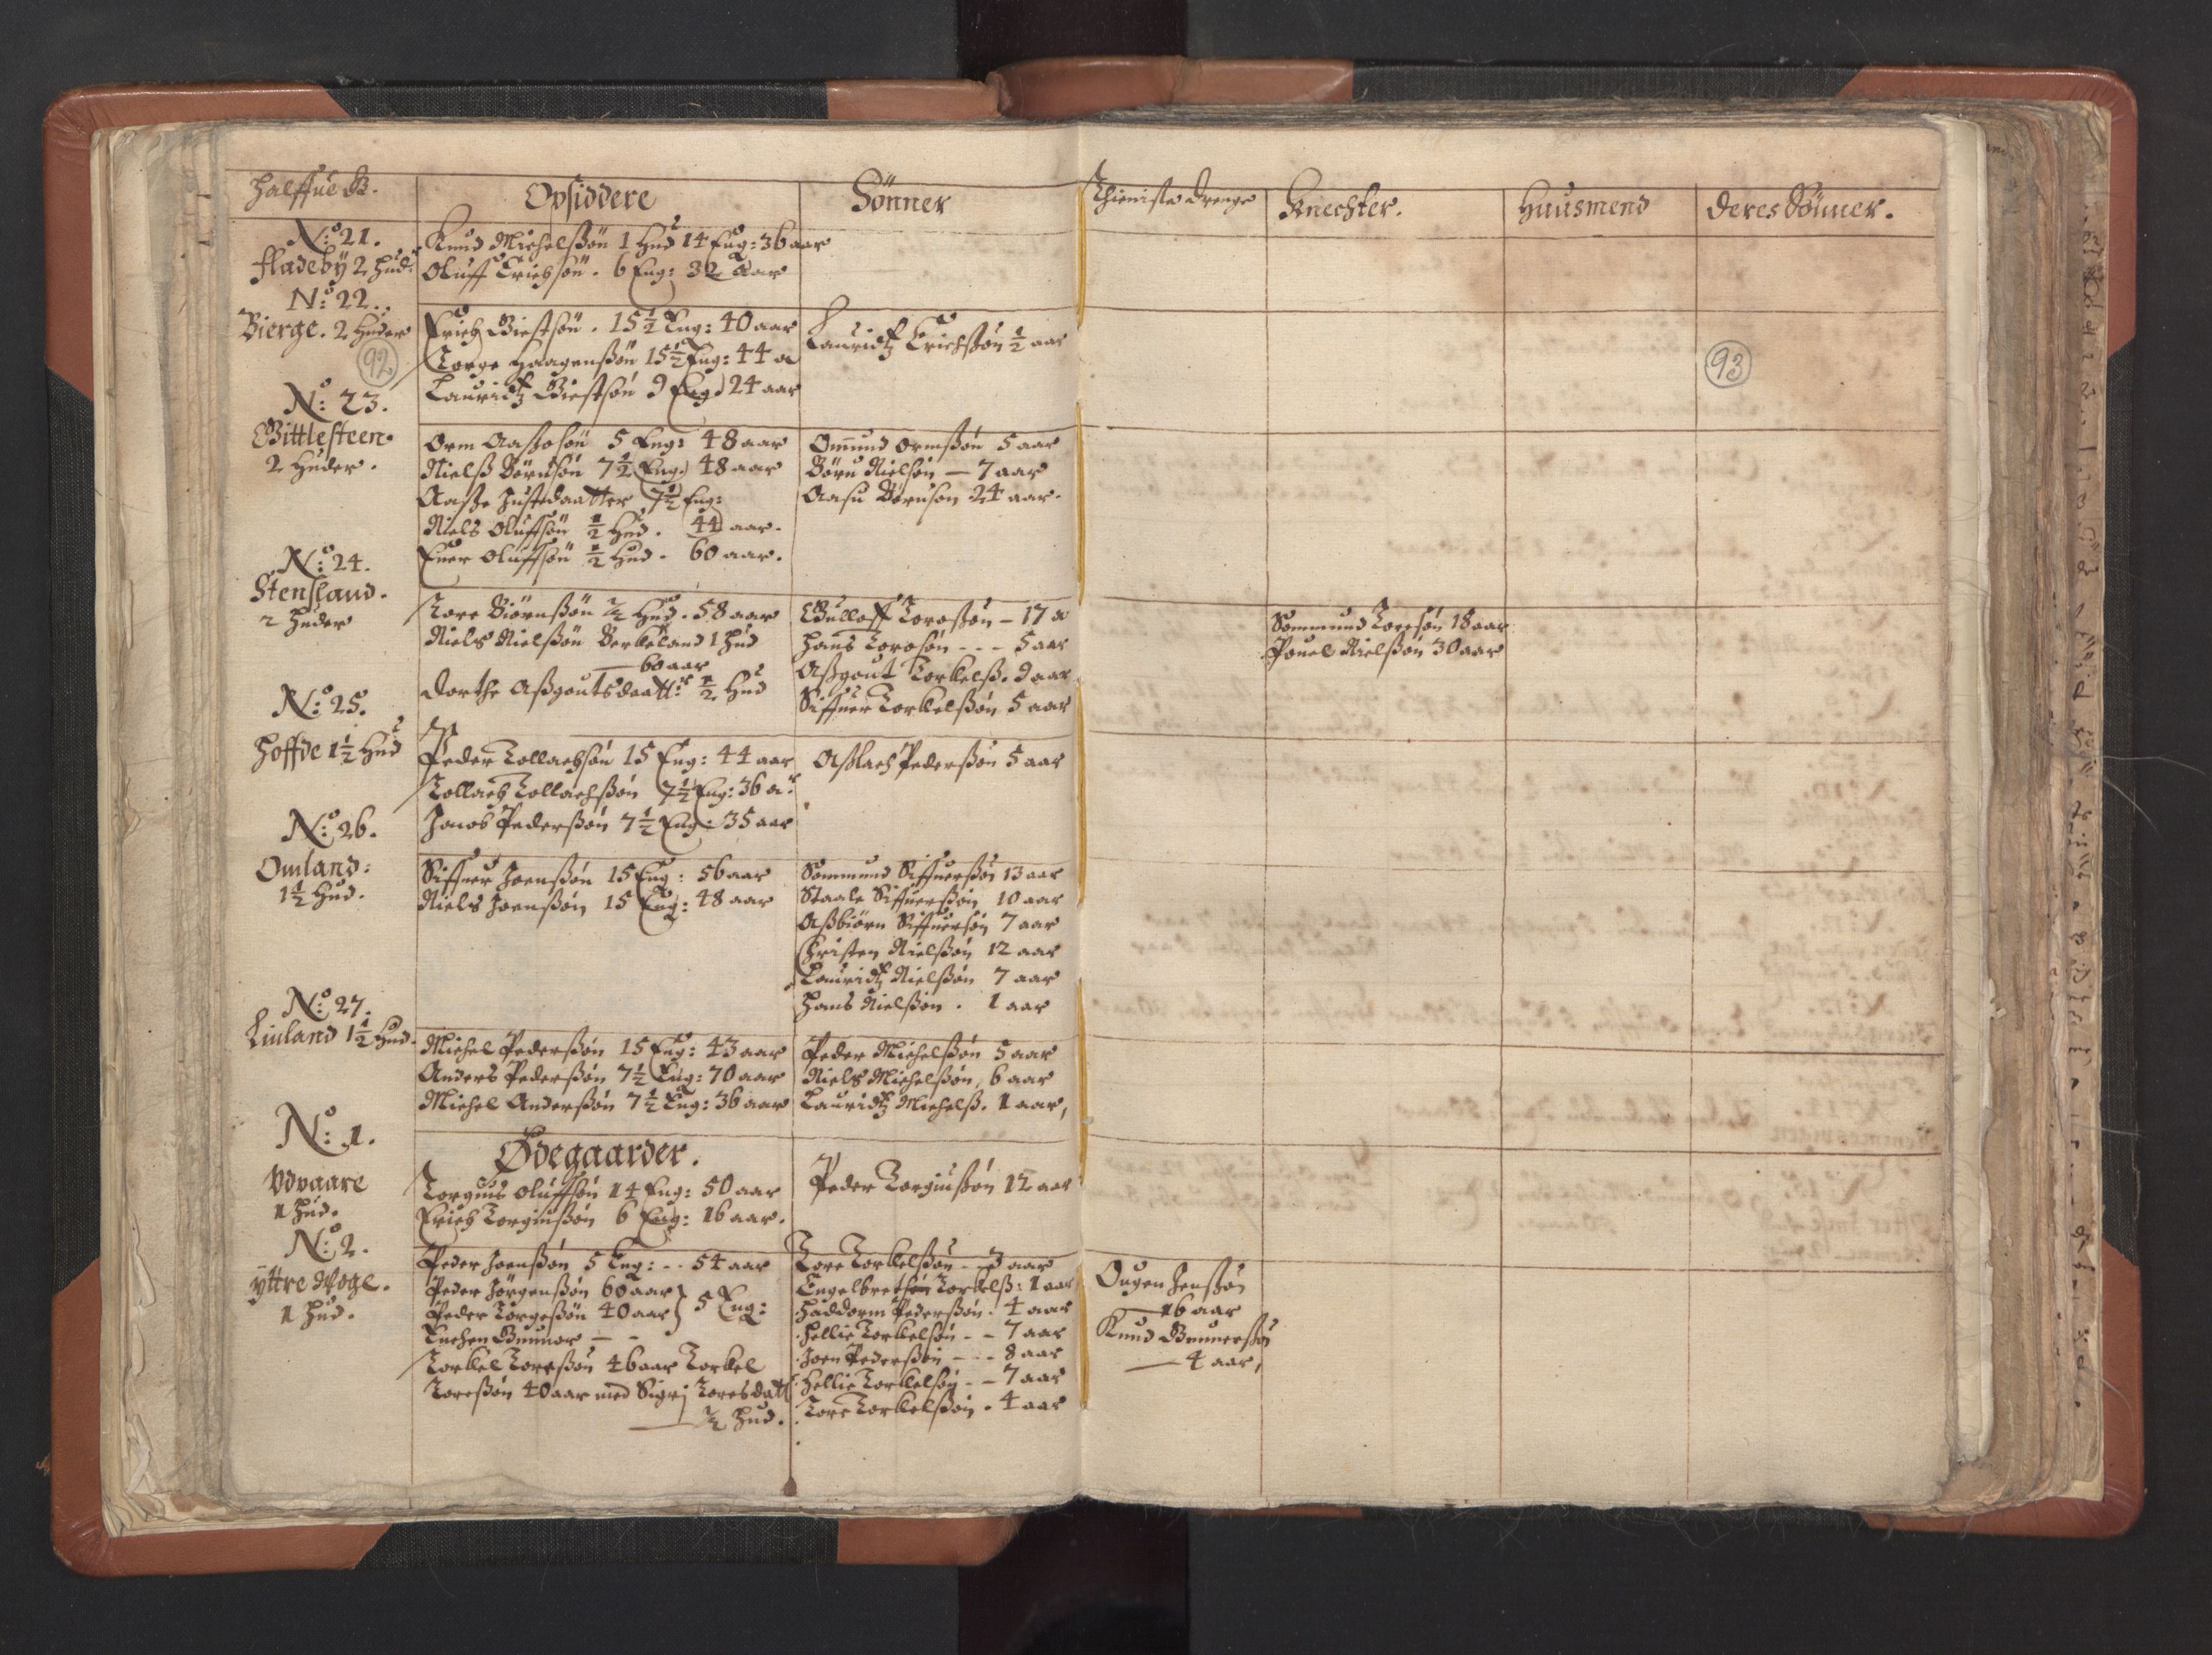 Halffue G.
Opsiddere
Sønner
Thieniste drenge
Knechter.
Huusmend
Deres Sønner.
No: 21.
fladebÿ 2 hud:
Knud Michelßøn 1 Hud 14 Eng: 36 aar
Oluff Erichsøn. 6 Eng: 32 Aar
No: 22.
Bierge. 2 Huder
92
93
Erich Giestsøn. 15½ Eng: 40 aar
Torge Haagenßøn 15½ Eng: 44 a
Lauridtz Giestsøn 9 Eng: 24 aar
Lauridtz Erichsøn ½ aar
No: 23.
Gittlesteen.
2 Huder.
Orm Aasløsøn 5 Eng: 48 aar
Nielß Børnsøn 7½ Eng: 48 aar
Aasze Justdaatter 7½ Eng:
Niels Oluffsøn ½ Hud. 44 aar.
Euer Oluffsøn ½ Hud. 60 aar.
Omund Ormßøn 5 aar
Børn Nielsøn — 7 aar
Aasu Børnson 24 aar.
No: 24.
Stensland.
2 Huder
Tore Biørnßøn ½ Hud. 58 aar
Niels Nielßøn Berkeland 1 Hud
— 60 aar
Dorthe Aßgoutsdaatt: ½ Hud
Gulloff Toreßøn – 17 a
Hans Toresøn - - - 5 aar
Aßgout Torkelß. 9 aar
Siffuer Torkelßøn 5 aar
Sommund Toresøn 18 aar
Pouel Nielßøn 30 aar
No: 25.
Hoffde 1½ Hud
Peder Tollachsøn 15 Eng: 44 aar
Tollach Tollachßøn 7½ Eng: 36 a:
Jonos Pederßøn 7½ Eng: 35 aar
Aßlach Pederßøn 5 aar
No: 26.
Omland:
1½ Hud.
Siffuer Joenßøn 15 Eng: 56 aar
Niels Joenßøn 15 Eng: 48 aar
Sommund Siffuerßøn 13 aar
Staale Siffuerßøn 10 aar
Aßbiørn Siffuersøn 7 aar
Christen Nielßøn 12 aar
Lauridtz Nielßøn 7 aar
Hans Nielßøn. 1 aar
No: 27.
Liuland 1½ Hud.
Michel Pederßøn 15 Eng: 43 aar
Anders Pederßøn 7½ Eng: 70 aar
Michel Anderßøn 7½ Eng: 36 aar
Peder Michelßøn 5 aar
Niels Michelßøn, 6 aar
Lauridtz Michelß. 1 aar,
No: 1.
Ødegaarder.
Vdvaare
1 Hud.
Torgius Oluffsøn 14 Eng: 50 aar
Erich Torgiußøn 6 Eng: 16 aar.
Peder Torgiusßøn 12 aar
No: 2.
ÿttre Woge.
1 Hud.
Peder Joenßøn 5 Eng: - - 54 aar
Peder Jørgenßøn 60 aar
Peder Torgeßøn 40 aar } 5 Eng:
Enchen Gunuor — -
Torkel Toreßøn 46 aar Torkel
Toreßøn 40 aar med Sigri Toresdatt
— ½ Hud.
Tore Torkelßøn - - 3 aar
Engelbretsøn Torkelß: 1 aar
Haddorm Pederßøn. 4 aar
Hellie Torkelsøn - - 7 aar
Joen Pederßøn - - - 8 aar
Hellie Torkelsøn - - 7 aar
Tore Torkelßøn. 4 aar
Ougen Jenßøn
— 16 aar
Knud Gunuerßøn
— 4 aar,